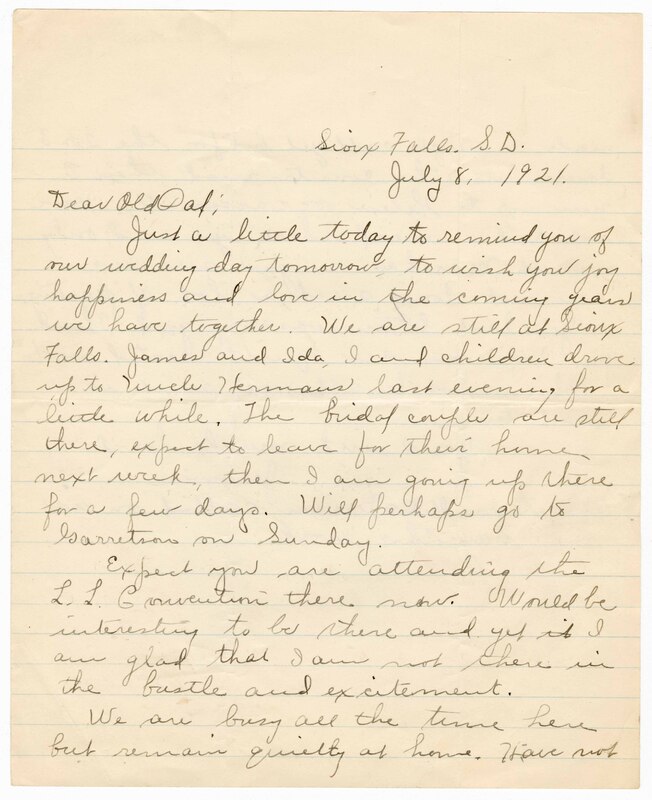 Sioux Falls. S.D.
July 8, 1921.
Dear Old Pal;
Just a little today to remind you of
our wedding day tomorrow, to wish you joy
happiness and love in the coming years
we have together. We are still at Sioux
Falls. James and Ida, I and children drove
up to Uncle Hermans last evening for a
little while. The bridal couple are still
there, expect to leave for their home
next week, then I am going up there
for a few days. Will perhaps go to
Garretson on Sunday.
Expect you are attending the
L. L. Convention there now. Would be
interesting to be there and yet it I
am glad that I am not there in
the bustle and excitement.
We are busy all the time here
but remain quietly at home. Have not